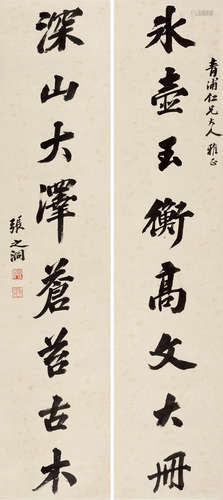 青浦仁兄大人雅正
冰壺玉衡高文大冊
深山大澤蒼苔古木
張之洞